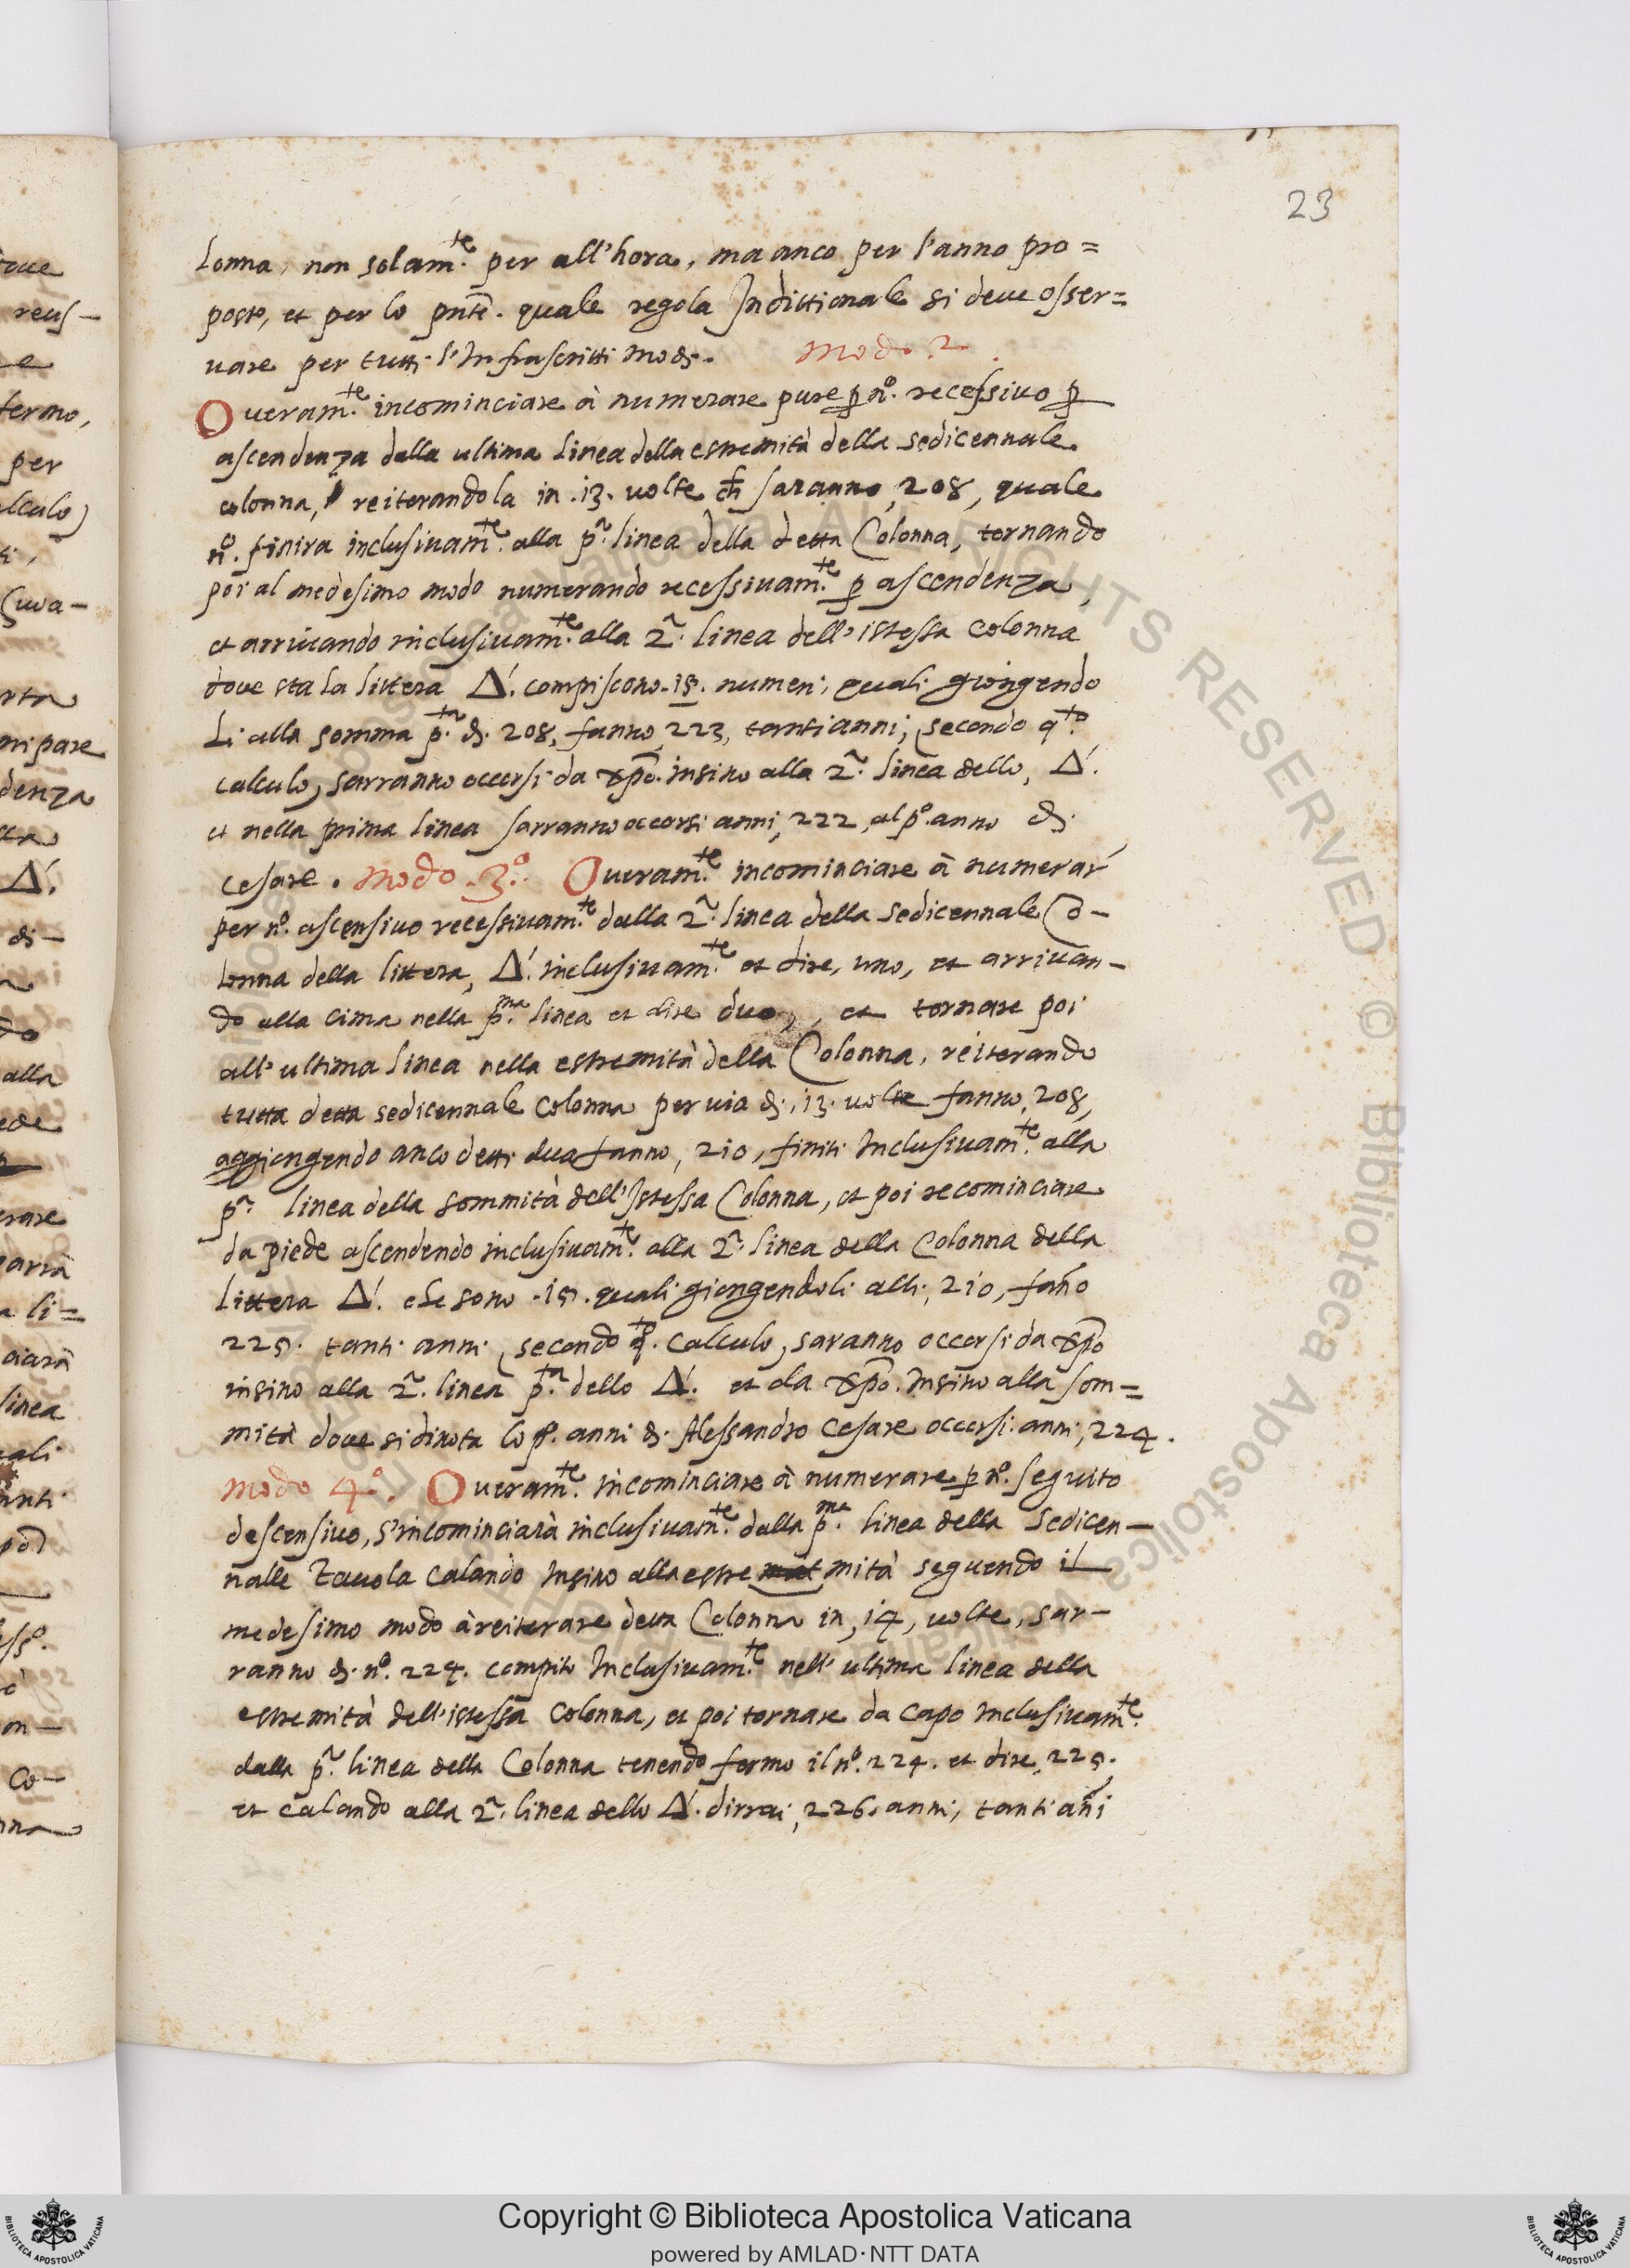 23
lonna, non solam.te per all'hora, ma anco per l'anno pro=
posto, et per lo pnte. quale regola Indittionale si deve osser=
uare per tutti l'Infrascritti modi. Modo. 2.
Oueram.te incominciare à numerare pure p no. recessiuo p
ascendenza dalla ultima linea della estremità della sedicennale
colonna, reiterandola in .13. uolte ch saranno, 208, quale
no. finira inclusiuam.te alla pa. linea della detta Colonna, tornando
poi al medesimo modo numerando recessiuam.te p ascendenza,
et arriuando inclusiuam.te alla 2a. linea dell'istessa colonna
doue sta la littera Δ. compiscono .15. numeri, quali giongendo
li alla somma p.ta di. 208, fanno, 223, tanti anni, (secondo q.to
calculo, sarranno occorsi da xpo. insino alla 2a. linea dello, Δ.
et nella prima linea sarranno occorsi anni, 222, al po. anno di
cesare. Modo. 3o. Oueram.te incominciare à numerar
per no. ascensiuo recessiuam.te dalla 2a. linea della sedicennale Co-
lonna della littera, Δ. inclusiuam.te et dire, uno, et arriuan-
do alla cima nella p.ma linea et dire duo, et tornare poi
all'ultima linea nella estremità della Colonna, reiterando
tutta detta sedicennale colonna per uia di .13. uolte fanno, 208,
aggiongendo anco detti dua fanno, 210, finiti Inclusiuam.te alla
pa. linea della sommità dell'Istessa Colonna, et poi recominciare
da piede ascendendo inclusiuam.te alla 2a. linea della Colonna della
Littera Δ. che sono .15. quali giongendoli alli, 210, fano
225. tanti anni, (secondo q.to calculo, saranno occorsi da xpo
insino alla 2a. linea p.ta dello Δ. et da xpo. Insino alla som=
mità doue si dinota lo po. anni di Alessandro Cesare occorsi anni, 224.
Modo 4o. Oueram.te incominciare à numerare p no. seguito
descensiuo, s'incominciarà inclusiuam.te dalla p.ma linea della Sedicen-
nalle Tauola calando Insino alla estremità seguendo il
medesimo modo à reiterare detta Colonna in, 14, uolte, sar-
ranno di no. 224. compito Inclusiuam.te nell'ultima linea della
estremità dell'istessa colonna, et poi tornare da capo Inclusiuam.te
dalla pa. linea della Colonna tenendo fermo il no. 224. et dire, 225,
et calando alla 2a. linea dello Δ. dirrai, 226. anni, tanti ani
Copyright © Biblioteca Apostolica Vaticana
powered by AMLAD·NTT DATA